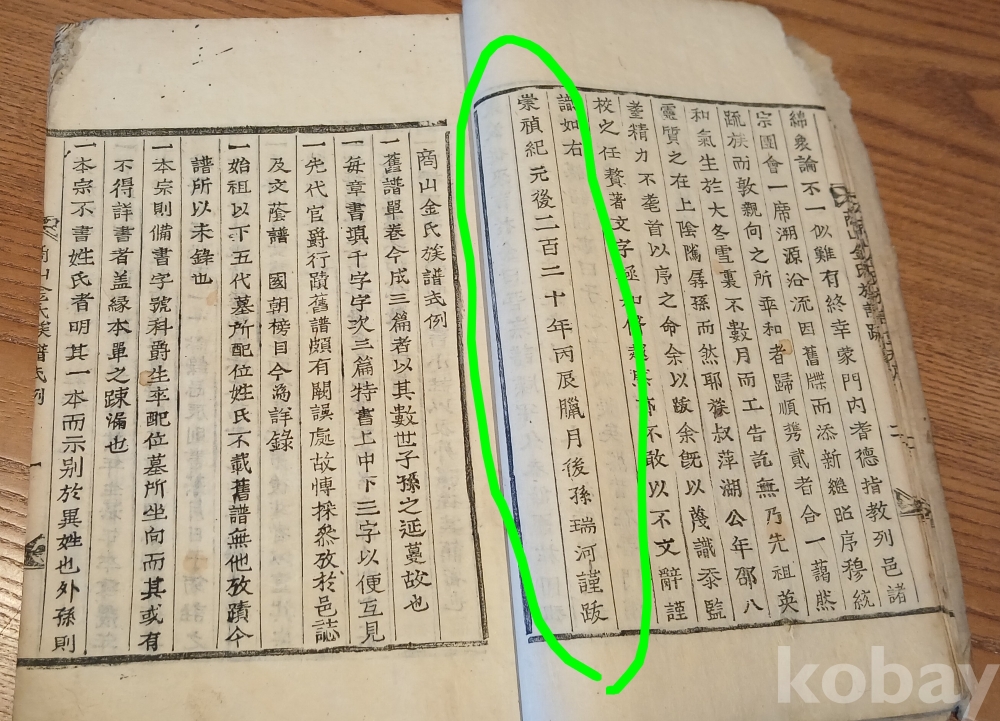 綿衆論不一似難有終幸蒙門內耆德指教列邑諸
宗團會一席溯源沿流因舊牒而添新繼昭序穆統
疏族而敦親向之所乖和者歸順携貳者合一藹然
和氣生於大冬雪裏不數月而工告訖無乃先祖英
靈質之在上陰騭孱孫而然耶族叔萍湖公年邵八
耋精力不耄首以序之命余以跋余旣以蔑識忝監
校之任贅著文字極知僭越寔亦不敢以不文辭謹
識如右
崇禎紀元後二百二十年丙辰臘月後孫瑞河謹跋
商山金氏族譜式例
一舊譜單卷今成三篇者以其數世子孫之延蔓故也
一每章書塡千字字次三篇特書上中下三字以便互見
一先代官爵行蹟舊譜頗有闕誤處故博採叅攷於邑誌
及文蔭譜 國朝榜目今爲詳錄
一始祖以下五代墓所配位姓氏不載舊譜無他攷蹟今
譜所以未錄也
一本宗則備書字號科爵生卒配位墓所坐向而其或有
不得詳書者盖緣本單之踈漏也
一本宗不書姓氏者明其一本而示別於異姓也外孫則
kobay